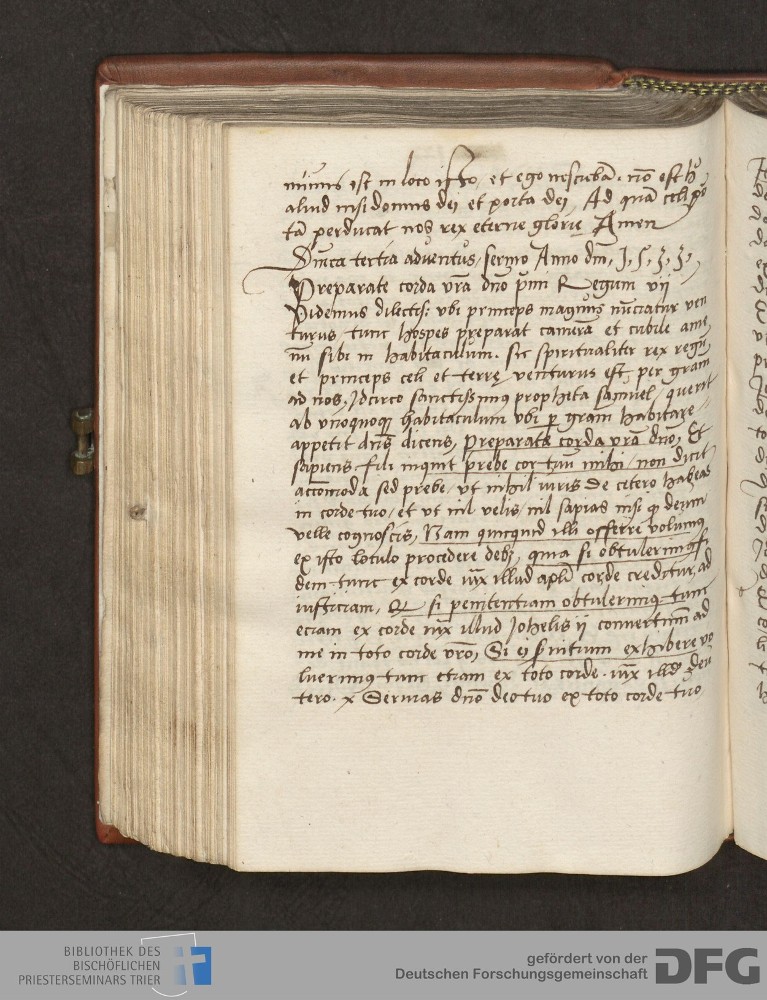 est in loco isto, et ego nesciebā. nō est h⁹
aliud nisi domus dei et porta dei, Ad quā celi por
tā perducat nos rex eterne glorie Amen
Dn̄ica tertia adventus, sermo Anno dm̄,
Preparate corda vr̄a dn̄o pr̄mi Regum vij
Videmus dilectis: vbi princeps magnus nūciatur ven
turus tunc hospes preparat camerā et cubile ame
nū sibi in habitaculum. sic spiritualiter rex regū
et princeps celi et terre venturus est per gram
ad nos, Idcirco sanctissimus propheta samuel querit
ab vnoquoq; habitaculum vbi p gram habitare
appetit dn̄s dicens, preparate corda vr̄a dn̄o, Et
sapiens fili inquit prebe cor tuū mihi non dicit
accōmoda sed prebe, vt nihil iuris de cetero habeas
in corde tuo, et vt nil velis, nil sapias nisi q deum
velle cognoscis, Nam quicquid illi offerre volumus
ex isto loculo procedere debz, quia si obtulerimus fi
dem tunc ex corde iux illud apli corde creditur ad
iusticiam, Q si penitentiam obtulerimus tunc
etiam ex corde iux illud Johelis ij convertimī ad
me in toto corde vr̄o, Si ei exhibere vo
luerimus tunc etiam ex toto corde. iux illd deu
tero. x Servias dn̄o deo tuo ex toto corde tuo
BIBLIOTHEK DES
BISCHÖFLICHEN
PRIESTERSEMINARS TRIER
gefördert von der
Deutschen Forschungsgemeinschaft
DFG